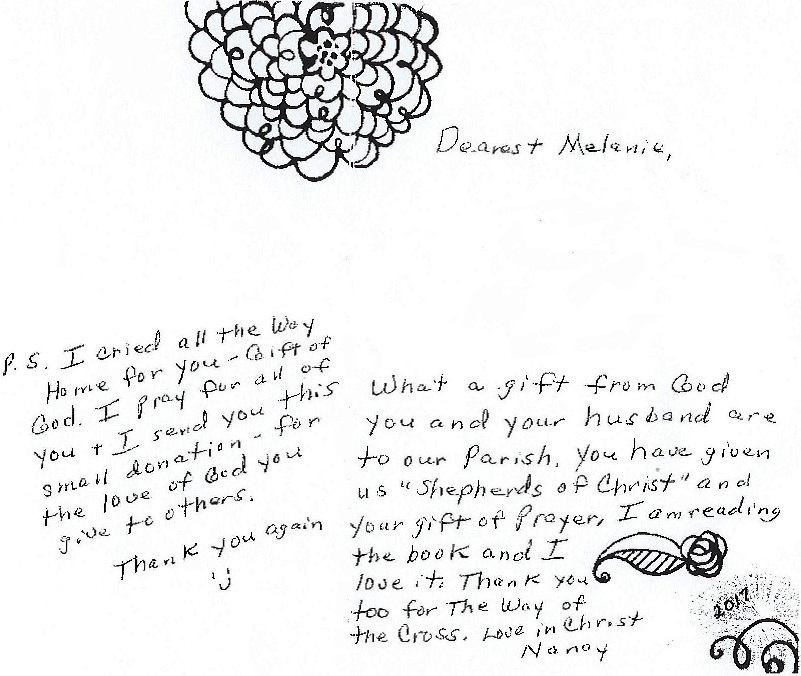 Dearest Melanie,
What a gift from God
you and your husband are
to our Parish, you have given
us "Shepherds of Christ" and
your gift of Prayer, I am reading
the book and I
love it. Thank you
too for The Way of
the Cross. Love in Christ
Nancy
2017
P.S. I cried all the Way
Home for you - Gift of
God. I pray for all of
you + I send you this
small donation - for
the love of God you
give to others.
Thank you again